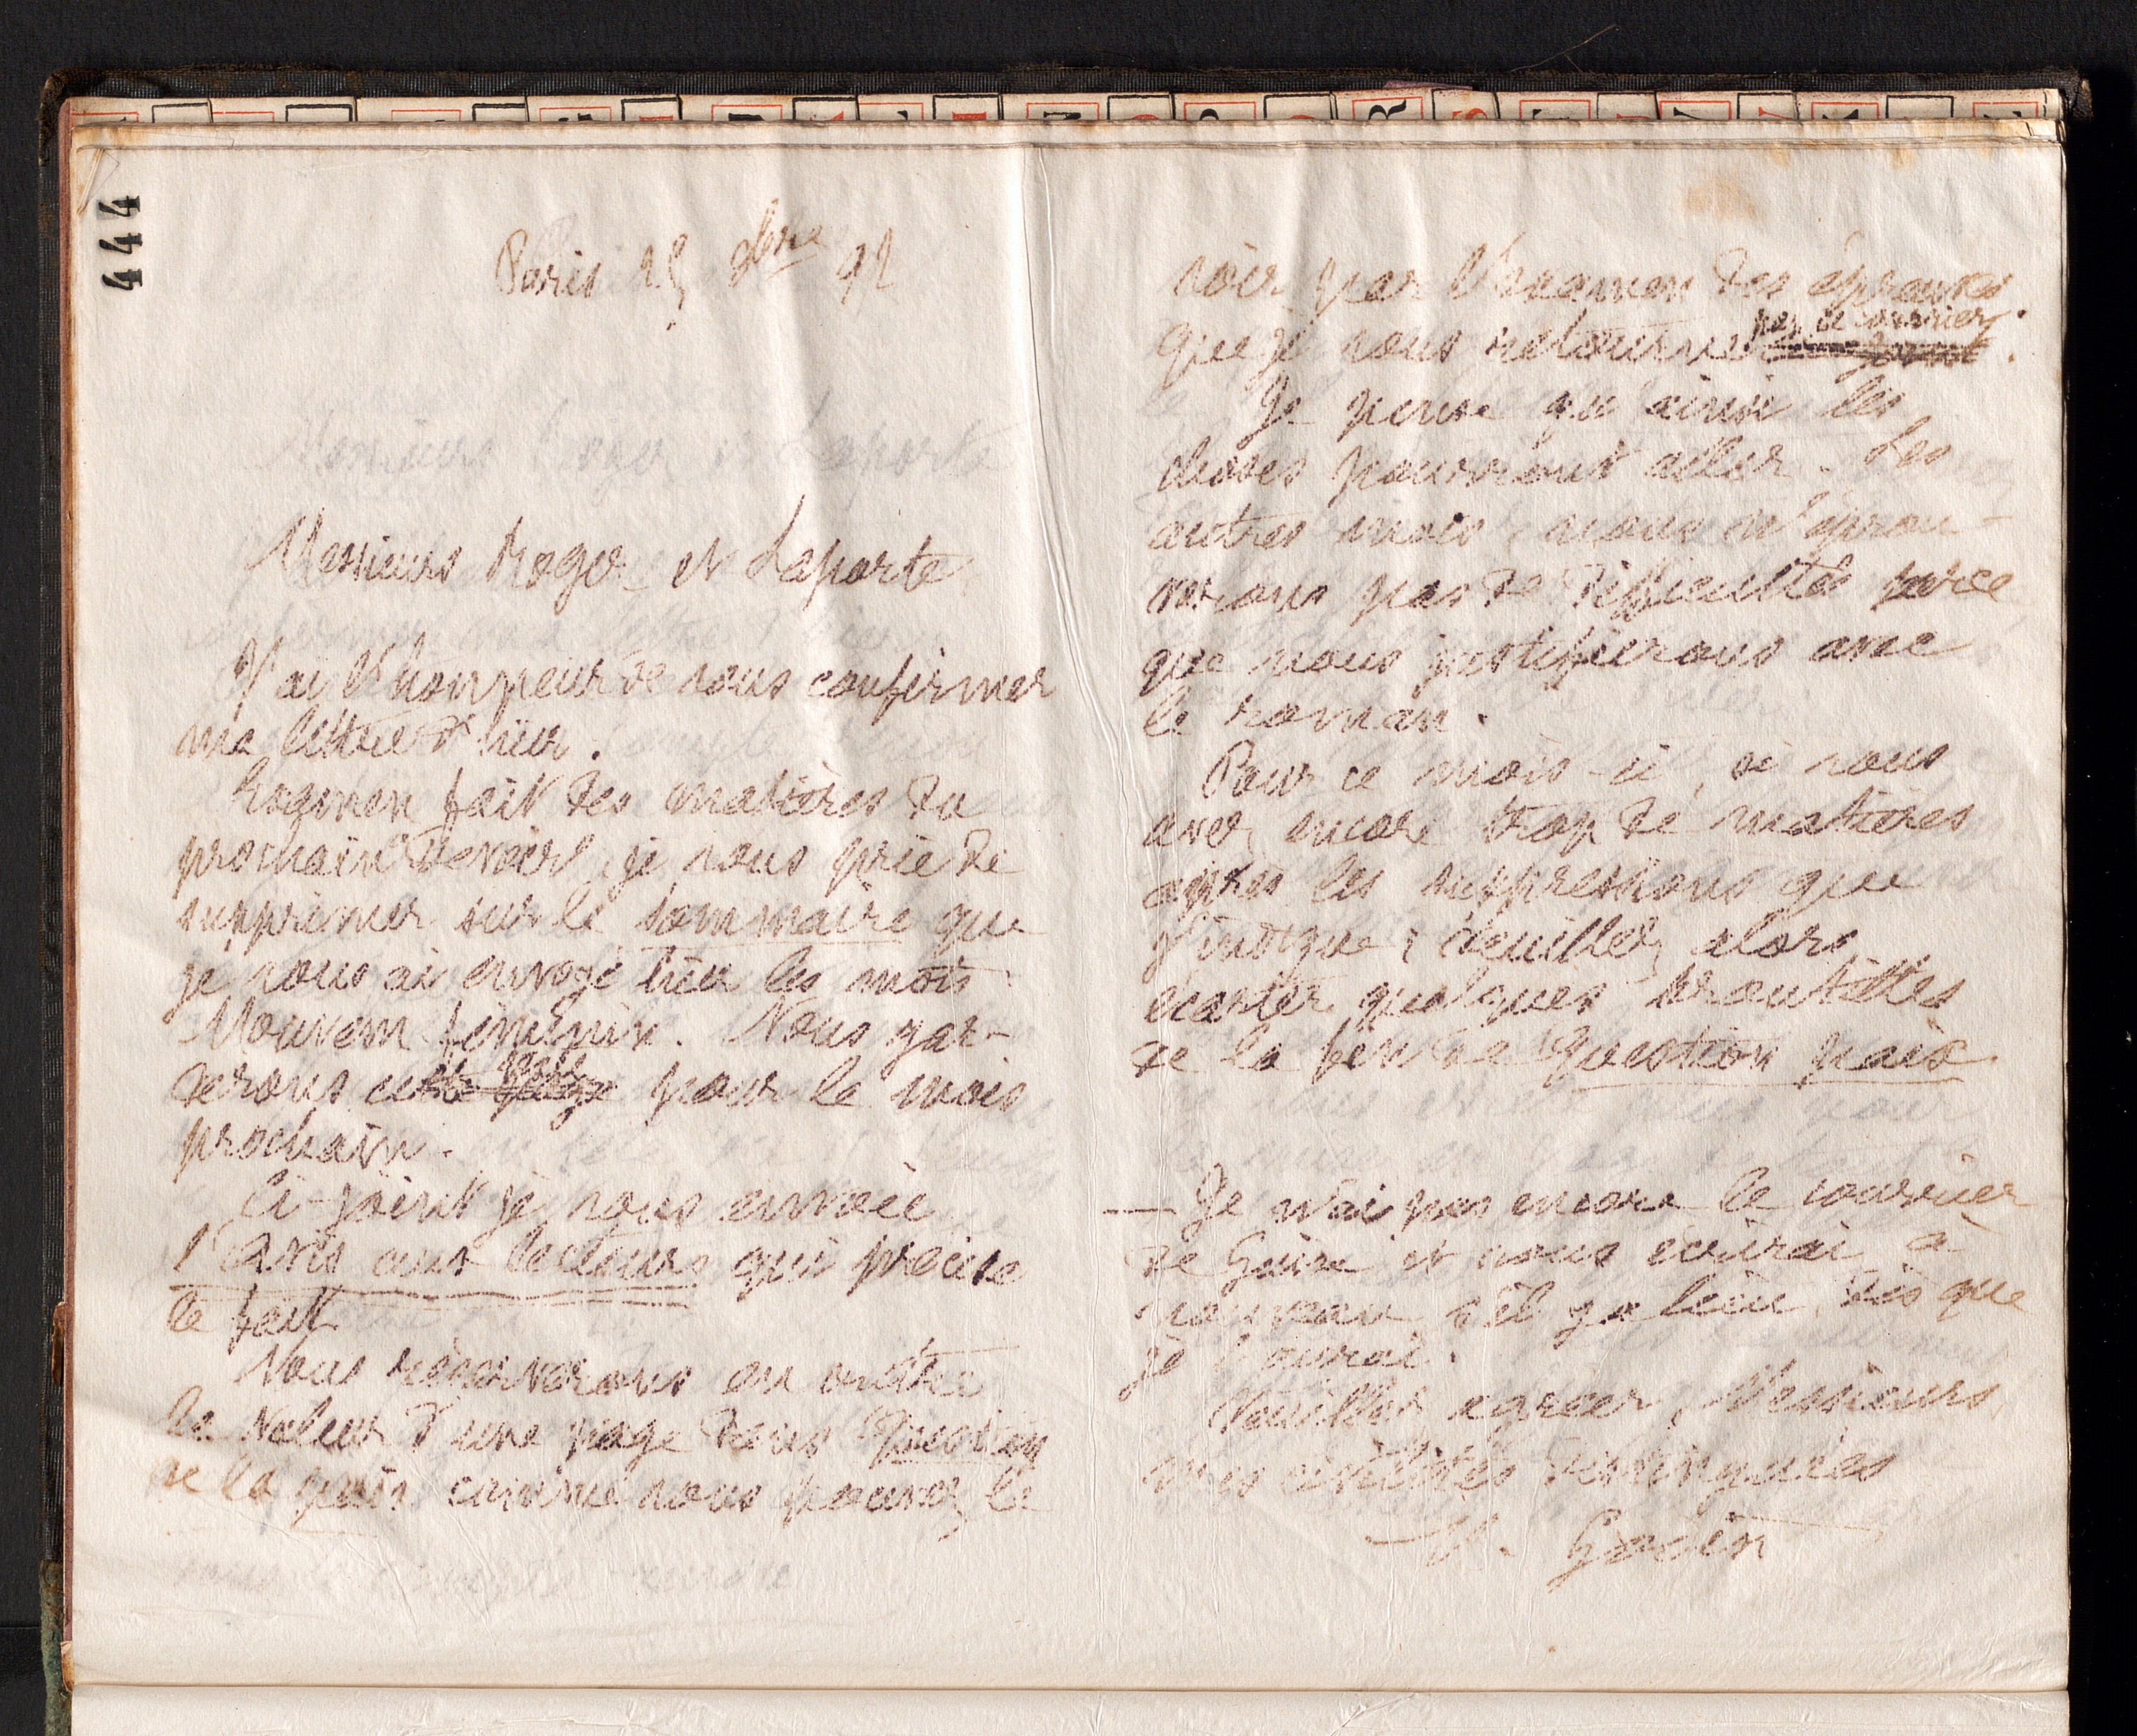 444
Paris 25 9bre 92
Messieurs Roger et Laporte
J'ai l'honneur de vous confirmer
ma lettre d'hier.
Examen fait des matières du
prochain Devoir, je vous prie de
supprimer sur le sommaire que
je vous ai envoyé hier les mots
Mouvem féminin. Nous gar-
derons cette page pour le mois
prochain.
Ci-joint je vous envoie
l'Avis aux lecteurs qui précise
le fait.
Nous réserverons en outre
la valeur d'une page dans Question
de la paix comme vous pouvez le
voir par l'examen des épreuves
que je vous retourne par ce courrier.
Je pense qu'ainsi les
choses pourront aller. Les
autres mois, nous n'éprou-
verons pas de difficultés parce
que nous justifierons avec
le roman.
Pour ce mois-ci, si vous
avez encore trop de matières
après les suppressions que
j'indique, veuillez alors
écarter quelques
de la fin de Question paix
— Je n'ai pas encore le courrier
de Guise et vous écrirai à
nouveau s'il y a lieu, dès que
je l'aurai.
Veuillez agréer, Messieurs,
mes civilités distinguées
V. Godin